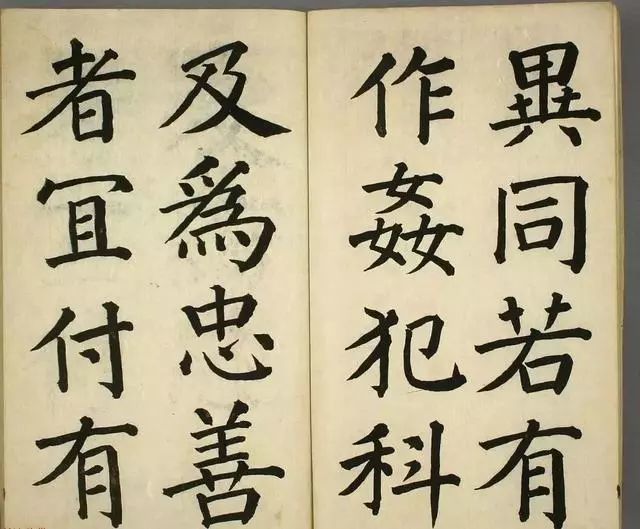 異同若有
作姦犯科
及為忠善
者宜付有